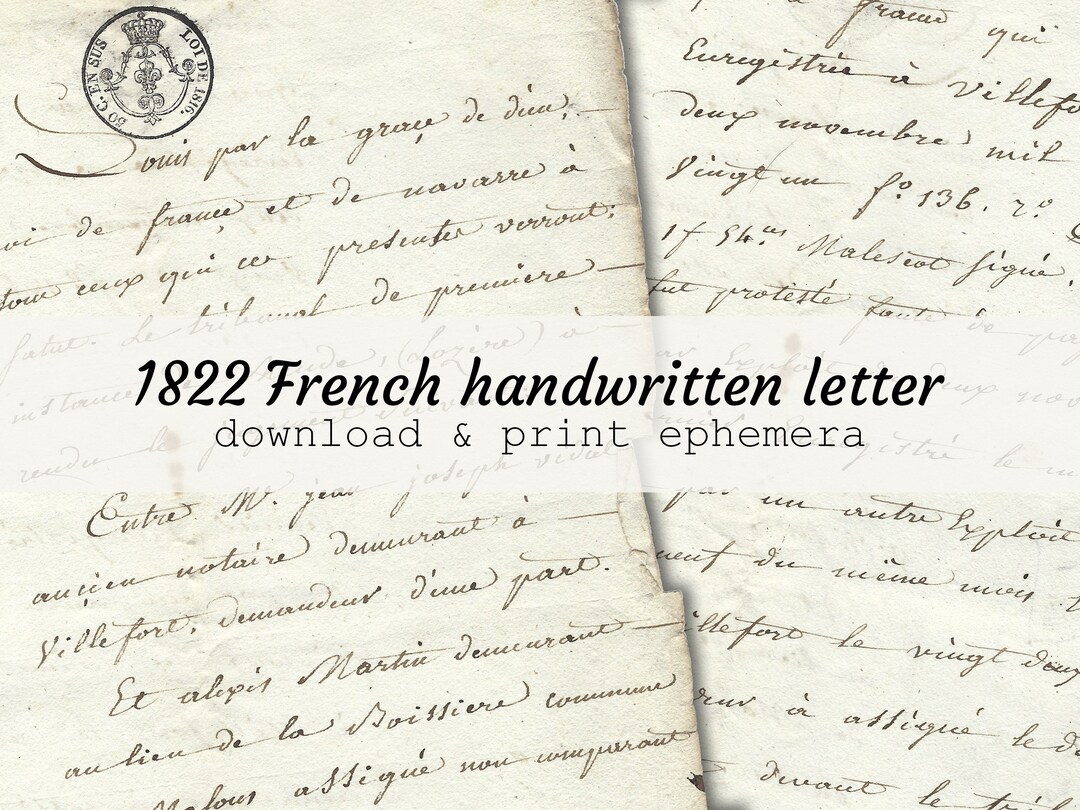 50 C. EN SUS
LOI DE 1816.
Louis par la graçe de dieu,
de françe et de navarre à
tous ceux qui ces presentes verront:
Salut. Le tribunal de première
instance (Lozère) à
rendu le
Entre Mr. jean joseph vidal
ançien notaire demeurant à
Villefort, demandeur d'une part.
Et alexis Martin demeurant
au lieu de la Boissiere commune
assigné non comparant
france qui
Enregistrée à Villefo
deux novembre mil
Vingt un fo. 136. ro
1f 54.cs Malescot signé.
fut protesté faute de
Exploit deux nov
gistré le
par un autre Exploit
neuf du même mois
illefort le vingt deux
à assigné le
devant le
1822 French handwritten letter
download & print ephemera